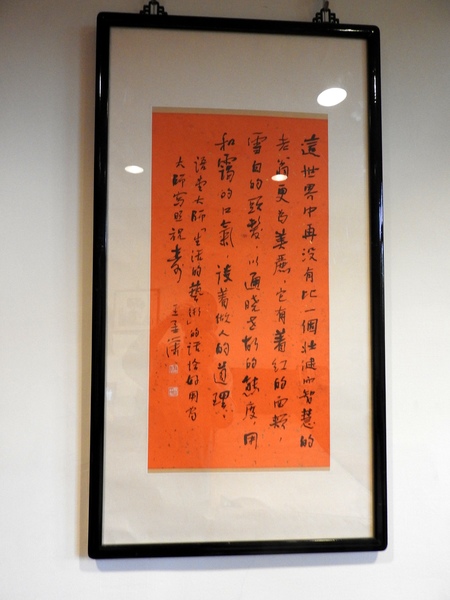 這世界中再沒有比一個壯健而智慧的
老翁更為美麗,它有着紅的面頰,
雪白的頭髮,以通曉世故的態度,用
和靄的口氣,談着做人的道理。
語堂大師「生活的藝術」的話恰好用
大師寫照祝壽
王